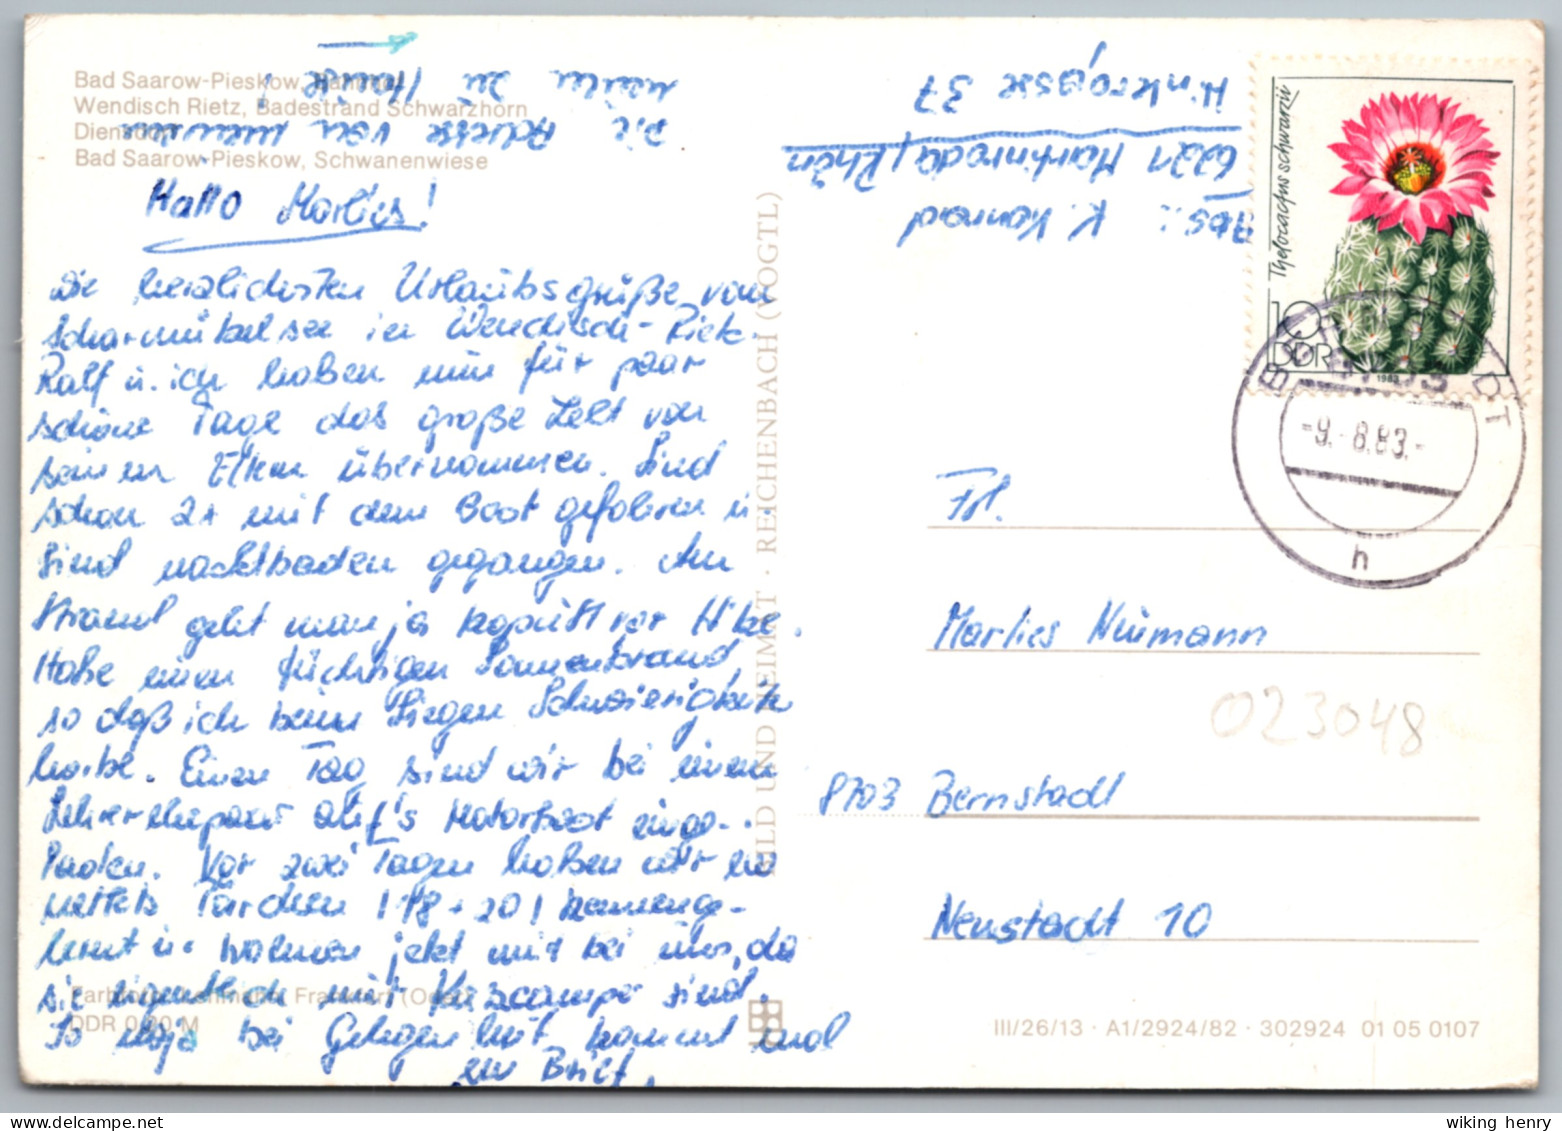 Bad Saarow-Pieskow,
Wendisch Rietz, Badestrand Schwarzhorn
Diensdorf
Bad Saarow-Pieskow, Schwanenwiese
Die Adresse von meinem
zu Hause!
Hallo Marlies!
Die herzlichsten Urlaubsgrüße vom
Scharmützelsee in Wendisch-Rietz.
Ralf u. ich haben nun für paar
schöne Tage das große Zelt von
seinen Eltern übernommen. Sind
schon 2x mit dem Boot gefahren u.
sind nacktbaden gegangen. Am
Strand geht man ja kaputt vor Hitze.
Habe einen tüchtigen Sonnenbrand,
so daß ich beim Liegen Schwierigkeiten
habe. Einen Tag sind wir bei einem
Lehrerehepaar auf's Motorboot einge-
laden. Vor zwei Tagen haben wir ein
nettes Pärchen (18 + 20) kennenge-
lernt u. wohnen jetzt mit bei uns, da
sie eigentlich mit Kurzcamper sind.
So naja bei Gelegenheit kommt mal
ein Brief.
Farbfotos: Frankfurt (Oder)
DDR 0,20 M
BILD UND HEIMAT · REICHENBACH (VOGTL)
Abs.: K. Konrad
6221 Martinroda/Rhön
Hinkergasse 37
Thelocactus schwarzii
10
DDR
1983
-9.-8.83.-
h
Frl.
Marlies Neumann
023048
8703 Bernstadt
Neustadt 10
III/26/13 · A1/2924/82 · 302924 01 05 0107
wiking henry